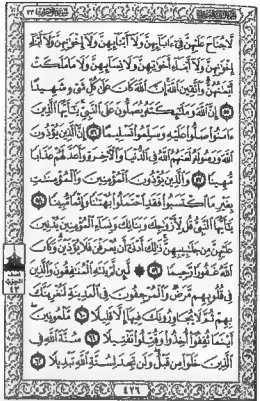 لَّا جُنَاحَ عَلَيْهِنَّ فِي ءَابَآئِهِنَّ وَلَآ أَبْنَآئِهِنَّ وَلَآ إِخْوَٰنِهِنَّ وَلَآ أَبْنَآءِ
إِخْوَٰنِهِنَّ وَلَآ أَبْنَآءِ أَخَوَٰتِهِنَّ وَلَا نِسَآئِهِنَّ وَلَا مَا مَلَكَتْ
أَيْمَٰنُهُنَّ وَٱتَّقِينَ ٱللَّهَ إِنَّ ٱللَّهَ كَانَ عَلَىٰ كُلِّ شَيْءٍ شَهِيدًا
٥٥ إِنَّ ٱللَّهَ وَمَلَٰٓئِكَتَهُۥ يُصَلُّونَ عَلَى ٱلنَّبِيِّ يَٰٓأَيُّهَا ٱلَّذِينَ
ءَامَنُوا۟ صَلُّوا۟ عَلَيْهِ وَسَلِّمُوا۟ تَسْلِيمًا ٥٦ إِنَّ ٱلَّذِينَ يُؤْذُونَ
ٱللَّهَ وَرَسُولَهُۥ لَعَنَهُمُ ٱللَّهُ فِي ٱلدُّنْيَا وَٱلْءَاخِرَةِ وَأَعَدَّ لَهُمْ عَذَابًا
مُّهِينًا ٥٧ وَٱلَّذِينَ يُؤْذُونَ ٱلْمُؤْمِنِينَ وَٱلْمُؤْمِنَٰتِ
بِغَيْرِ مَا ٱكْتَسَبُوا۟ فَقَدِ ٱحْتَمَلُوا۟ بُهْتَٰنًا وَإِثْمًا مُّبِينًا ٥٨
يَٰٓأَيُّهَا ٱلنَّبِيُّ قُل لِّأَزْوَٰجِكَ وَبَنَاتِكَ وَنِسَآءِ ٱلْمُؤْمِنِينَ يُدْنِينَ
عَلَيْهِنَّ مِن جَلَٰبِيبِهِنَّ ذَٰلِكَ أَدْنَىٰٓ أَن يُعْرَفْنَ فَلَا يُؤْذَيْنَ وَكَانَ
ٱللَّهُ غَفُورًا رَّحِيمًا ٥٩ لَّئِن لَّمْ يَنتَهِ ٱلْمُنَٰفِقُونَ وَٱلَّذِينَ
فِي قُلُوبِهِم مَّرَضٌ وَٱلْمُرْجِفُونَ فِي ٱلْمَدِينَةِ لَنُغْرِيَنَّكَ
بِهِمْ ثُمَّ لَا يُجَاوِرُونَكَ فِيهَآ إِلَّا قَلِيلًا ٦٠ مَّلْعُونِينَ
أَيْنَمَا ثُقِفُوٓا۟ أُخِذُوا۟ وَقُتِّلُوا۟ تَقْتِيلًا ٦١ سُنَّةَ ٱللَّهِ فِي
ٱلَّذِينَ خَلَوْا۟ مِن قَبْلُ وَلَن تَجِدَ لِسُنَّةِ ٱللَّهِ تَبْدِيلًا ٦٢
٤٢٦